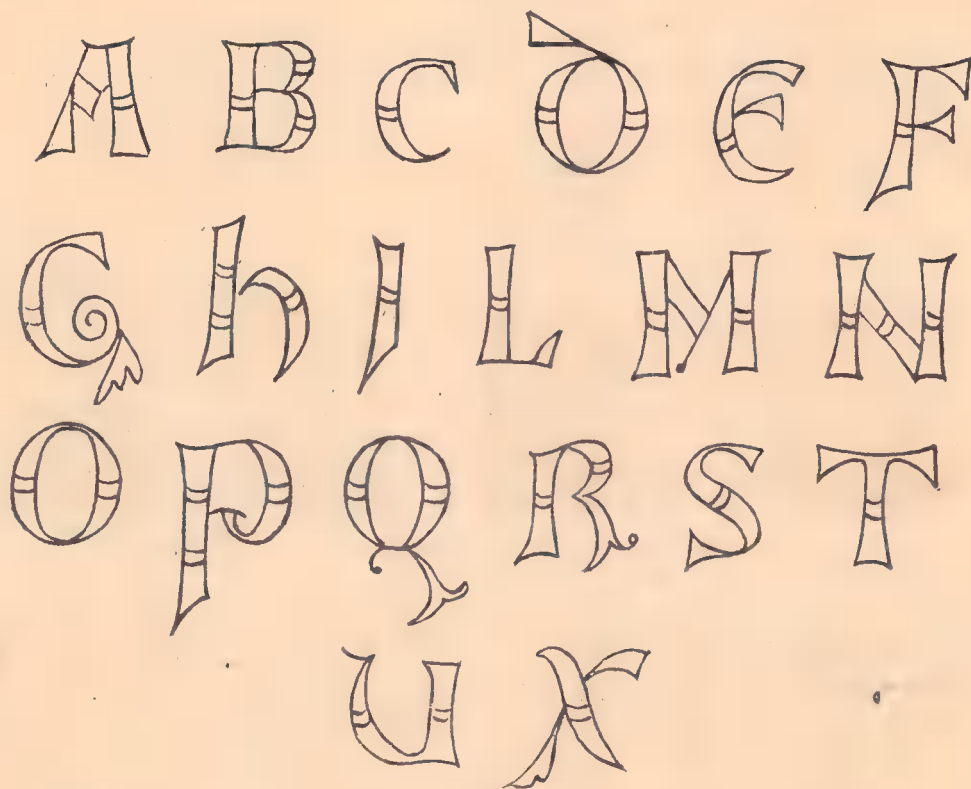 A B C D E F
G h I L M N
O P Q R S T
U X